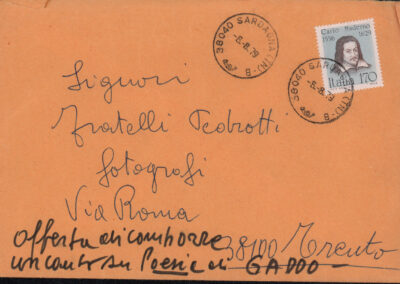 38040 SARDAGNA (TN)
-8.8.79
B
Carlo Maderno
1556 1629
Italia 170
38040 SARDAGNA (TN)
-8.8.79
B
Signori
Fratelli Pedrotti
fotografi
Via Roma
38100 Trento
offerta di comporre
un canto su Poesie di GADDO